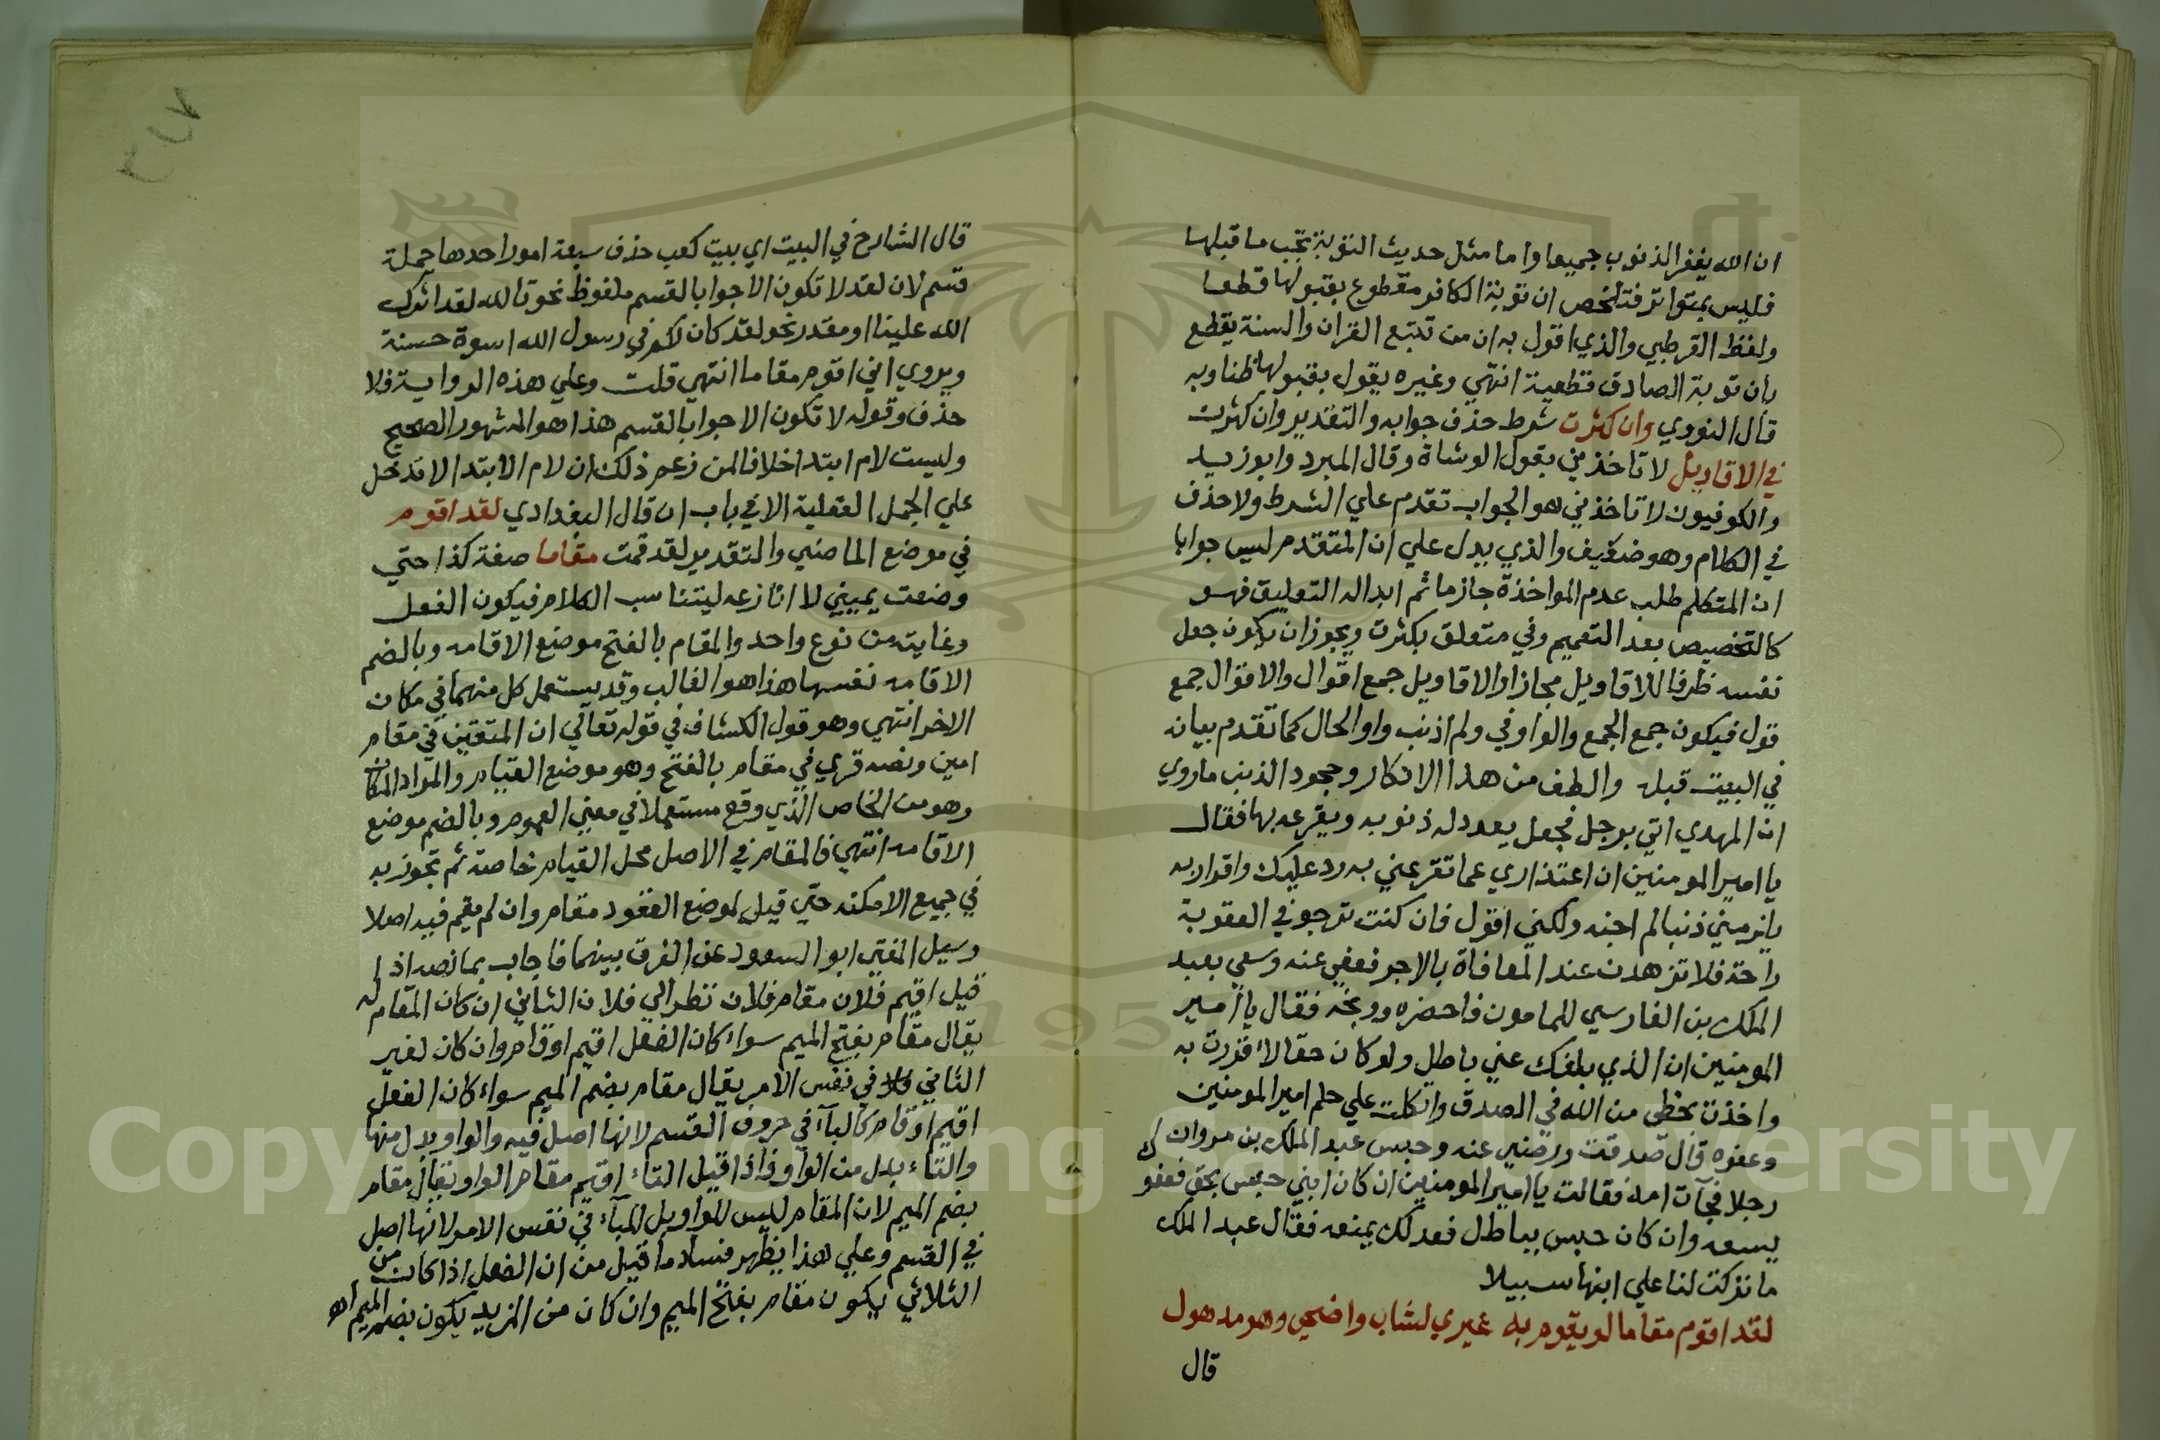 ان الله يغفر الذنوب جميعا واما مثل حديث التوبة تجب ما قبلها
فليس بمتواتر فتلخص ان توبة الكافر مقطوع بقبولها قطعا
ولفظ القرطبي والذي اقول به ان من تتبع القران والسنة يقطع
بان توبة الصادق قطعية انتهي وغيره يقول بقبولها ظنا وبه
قال النووي وان كثرت شرط حذف جوابه والتقدير وان كثرت
في الاقاويل لا تاخذني بقول الوشاة وقال المبرد وابو زيد
والكوفيون لا تاخذني هو الجواب تقدم علي الشرط ولا حذف
في الكلام وهو ضعيف والذي يدل علي ان المتقدم ليس جوابا
ان المتكلم طلب عدم المواخذة جازما ثم ابدا له التعليق فهو
كالتخصيص بعد التعميم وفي متعلق بكثرت ويجوز ان يكون جعل
نفسه ظرفا للاقاويل مجازا والاقاويل جمع اقوال والاقوال جمع
قول فيكون جمع الجمع والواو في ولم اذنب واو الحال كما تقدم بيانه
في البيت قبله والطف من هذا الانكار وجحود الذنب ما روي
ان المهدي اتي برجل فجعل يعدد له ذنوبه ويقرعه بها فقال
يا امير المومنين ان اعتذاري عما تقرعني به رد عليك واقرار به
يلزمني ذنبا لم اجنه ولكني اقول فان كنت ترجو في العقوبة
راحة فلا تزهدن عند المعافاة بالاجر فعفي عنه وسعي بعبد
الملك بن الفارسي للمامون فاحضره ووبخه فقال يا امير
المومنين ان الذي بلغك عني باطل ولو كان حقا لاقررت به
واخذت بحظي من الله في الصدق واتكلت علي حلم امير المومنين
وعفوه قال صدقت ورضي عنه وحبس عبد الملك بن مروان
رجلا فجآت امه فقالت يا امير المومنين ان كان ابني حبس بحق فعفوك
يسعه وان كان حبس بباطل فعدلك يمنعه فقال عبد الملك
ما تركت لنا علي ابنها سبيلا
لقد اقوم مقاما لو يقوم به غيري لشاب واضحي وهو مدهول
قال
٣٤٧
قال الشارح في البيت اي بيت كعب حذف سبعة امور احدها جملة
قسم لان لقد لا تكون الا جوابا لقسم ملفوظ نحو تالله لقد اثرك
الله علينا او مقدر نحو لقد كان لكم في رسول الله اسوة حسنة
ويروي اني اقوم مقاما انتهي قلت وعلي هذه الرواية فلا
حذف وقوله لا تكون الا جوابا لقسم هذا هو المشهور الصحيح
وليست لام ابتدا خلافا لمن زعم ذلك ان لام الابتدا لا تدخل
علي الجمل الفعلية الا في باب ان قال البغدادي لقد اقوم
في موضع الماضي والتقدير لقد قمت مقاما صفة كذا حتي
وضعت يميني لا انازعه ليتناسب الكلام فيكون الفعل
وغايته من نوع واحد والمقام بالفتح موضع الاقامه وبالضم
الاقامه نفسها هذا هو الغالب وقد يستعمل كل منهما في مكان
الاخر انتهي وهو قول الكشاف في قوله تعالي ان المتقين في مقام
امين ونصه قري في مقام بالفتح وهو موضع القيام والمراد المكان
وهو من الخاص الذي وقع مستعملا في معني العموم وبالضم موضع
الاقامه انتهي فالمقام في الاصل محل القيام خاصة ثم تجوز به
في جميع الامكنه حتي قيل لموضع القعود مقام وان لم يقم فيه اصلا
وسيل المفتي ابو السعود عن الفرق بينهما فاجاب بما نصه اذا
قيل اقيم فلان مقام فلان ننظر الي فلان الثاني ان كان المقام له
يقال مقام بفتح الميم سواء كان الفعل اقيم او قام وان كان لغير
الثاني في نفس الامر يقال مقام بضم الميم سواء كان الفعل
اقيم او قام كالبآء في حروف القسم لانها اصل فيه والواو بدل منها
والتاء بدل من الواو فاذا قيل التاء اقيم مقام الواو يقال مقام
بضم الميم لان المقام ليس للواو بل للبآء في نفس الامر لانها اصل
في القسم وعلي هذا يظهر فساد ما قيل من ان الفعل اذا كان من
الثلاثي يكون مقام بفتح الميم وان كان من المزيد يكون بضم الميم اه
Copyright © King Saud University
1957